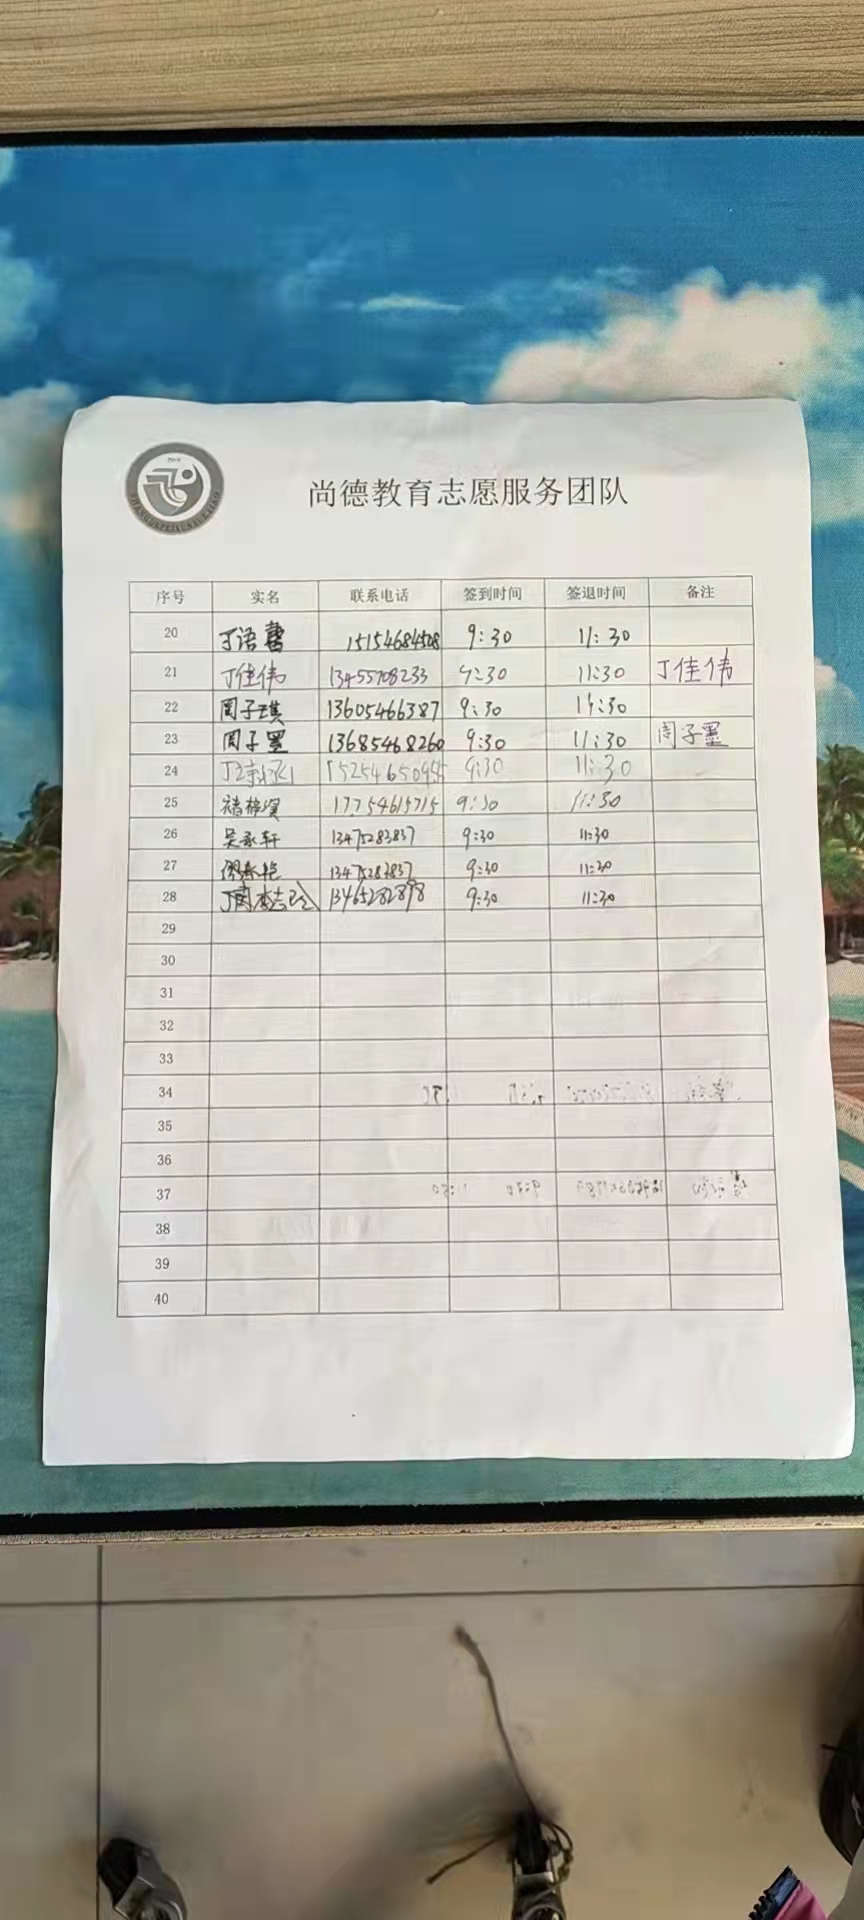 尚德教育志愿服务团队
序号 实名 联系电话 签到时间 签退时间 备注
20 丁语蕾 15154684508 9:30 11:30
21 丁佳伟 13455708233 9:30 11:30 丁佳伟
22 周子琪 13605466387 9:30 11:30
23 周子墨 13685468260 9:30 11:30 周子墨
24 9:30 11:30
25 17754615715 9:30 11:30
26 吴承轩 13475283837 9:30 11:30
27 13475283837 9:30 11:30
28 13465282898 9:30 11:30
29
30
31
32
33
34
35
36
37
38
39
40